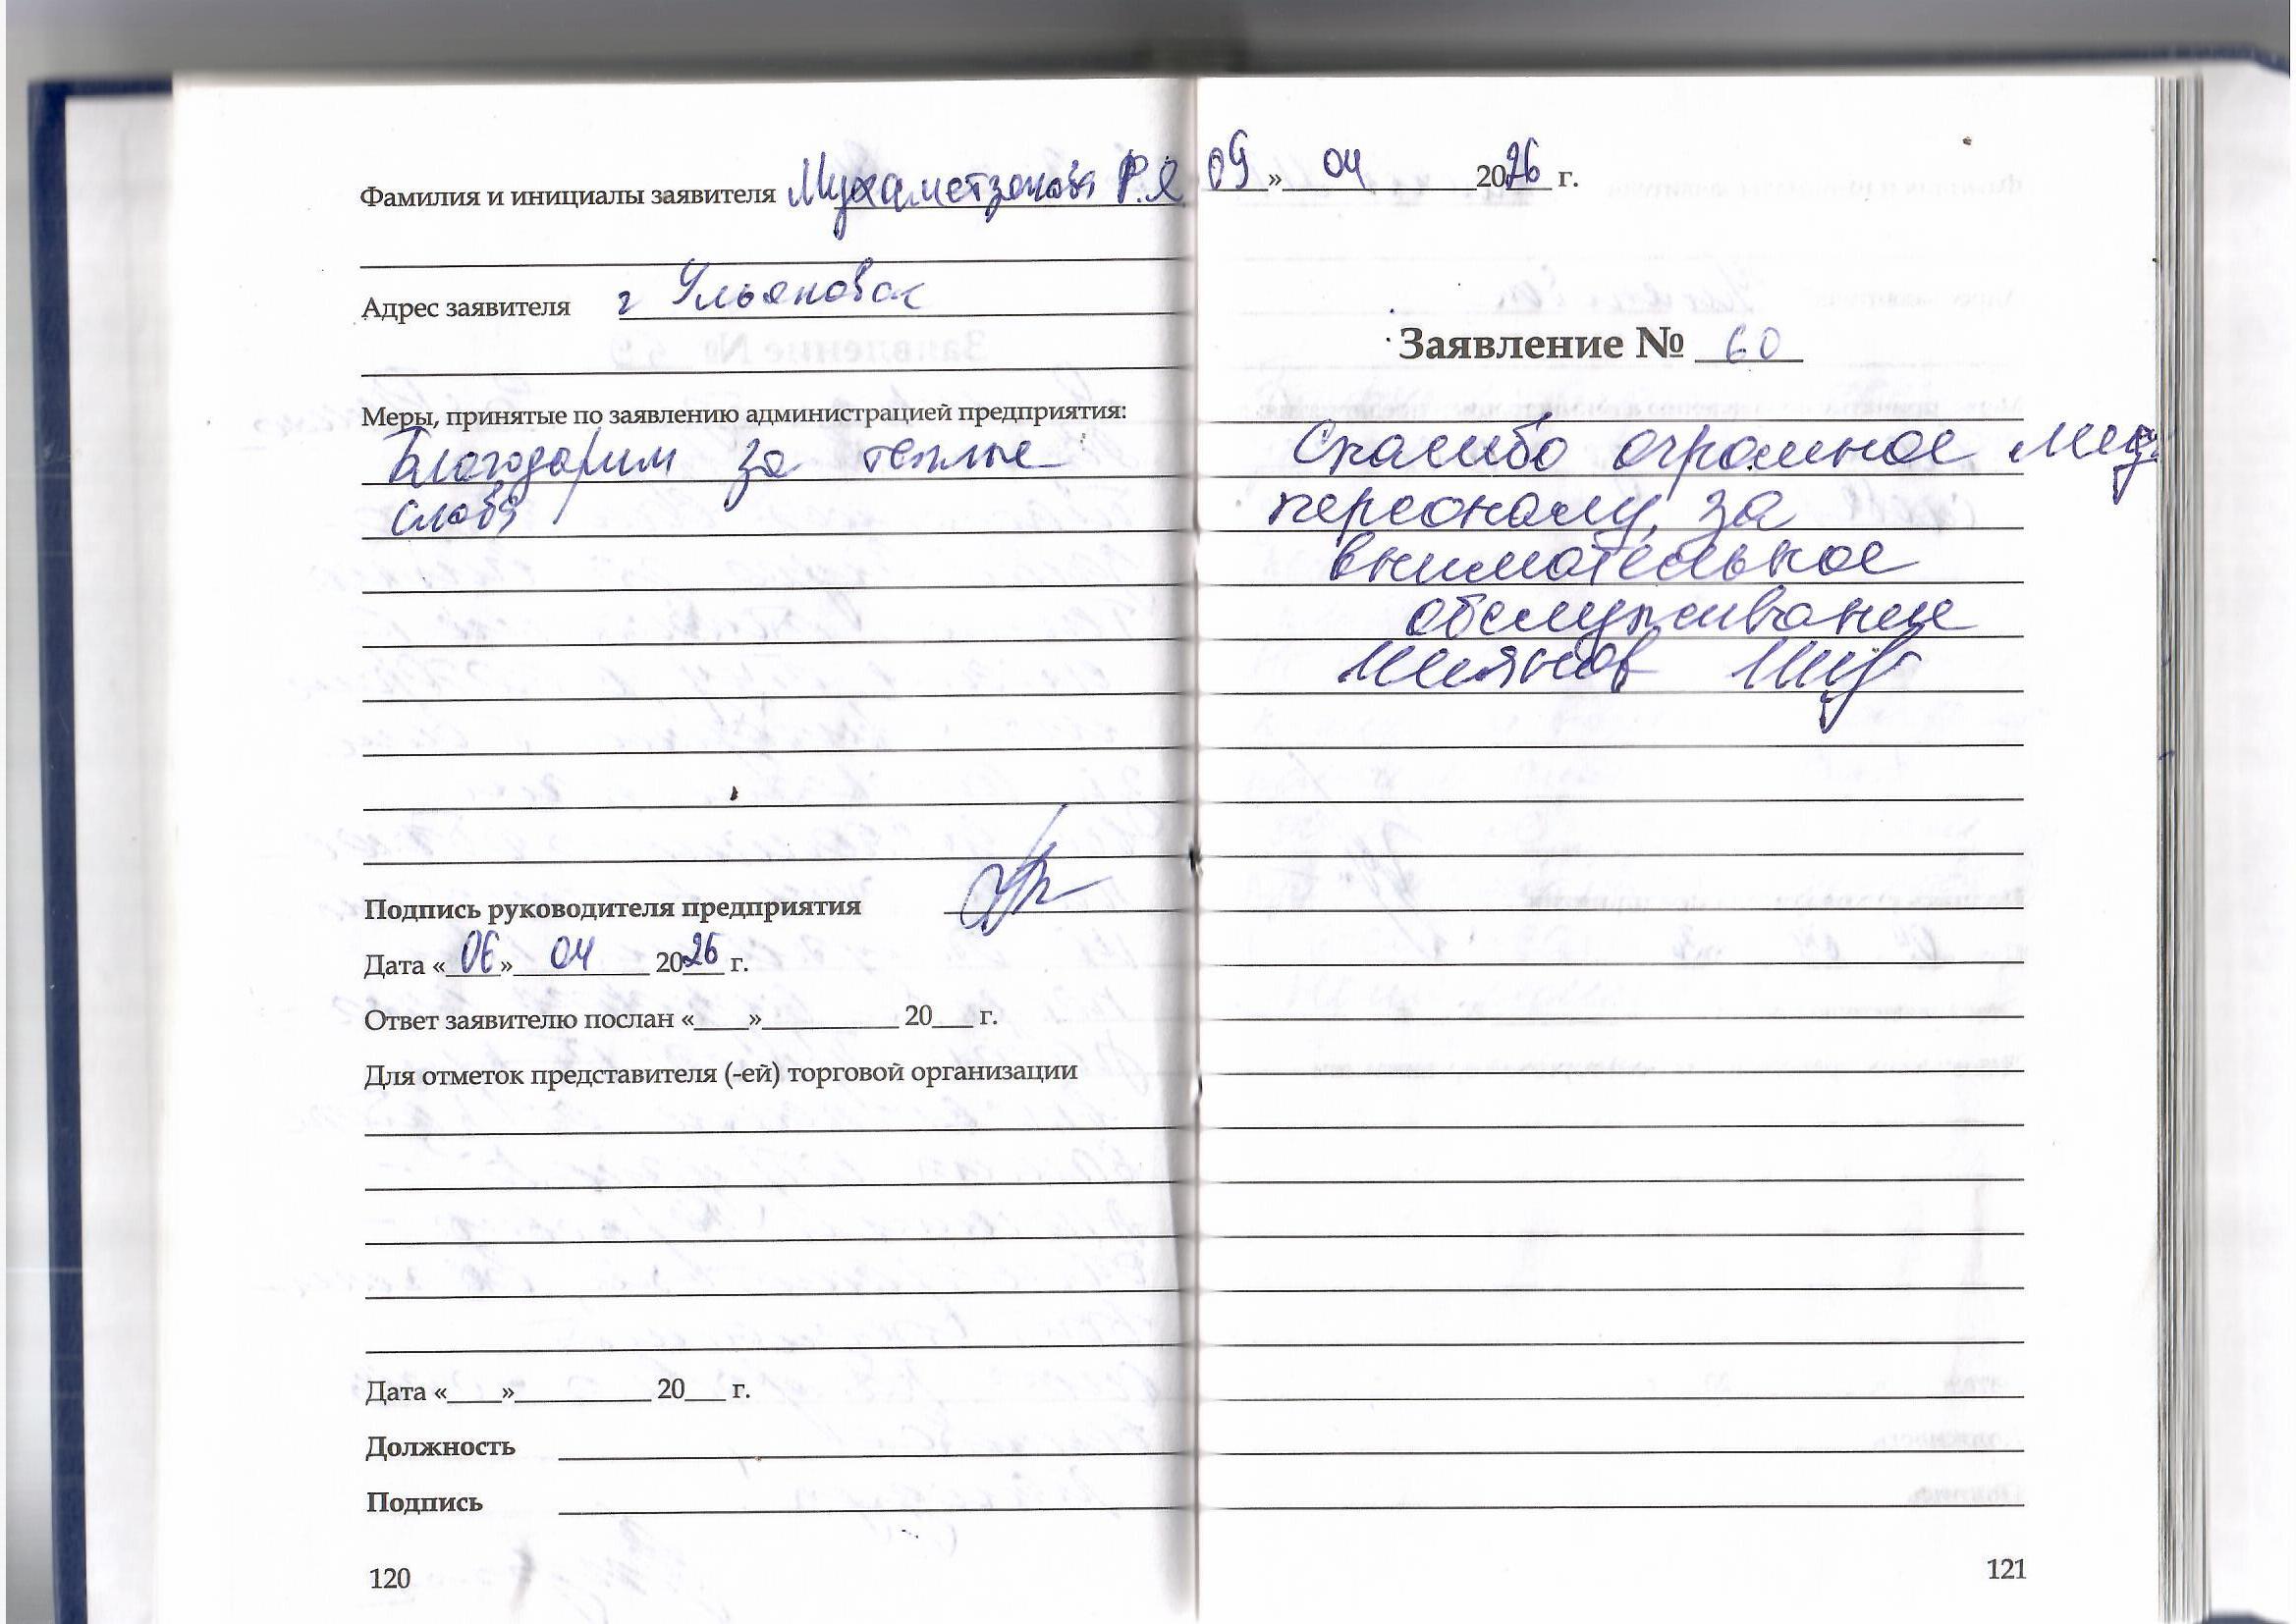 Фамилия и инициалы заявителя Мухаметзянова Р.Я
Адрес заявителя г Ульяновск
Меры, принятые по заявлению администрацией предприятия:
Благодарим за теплые
слова
Подпись руководителя предприятия
Дата «06» 04 2026 г.
Ответ заявителю послан «____»__________ 20___ г.
Для отметок представителя (-ей) торговой организации
Дата «____»__________ 20___ г.
Должность
Подпись
120
09» 04 2026 г.
Заявление № 60
Спасибо огромное мед
персоналу, за
внимательное
обслуживание
121